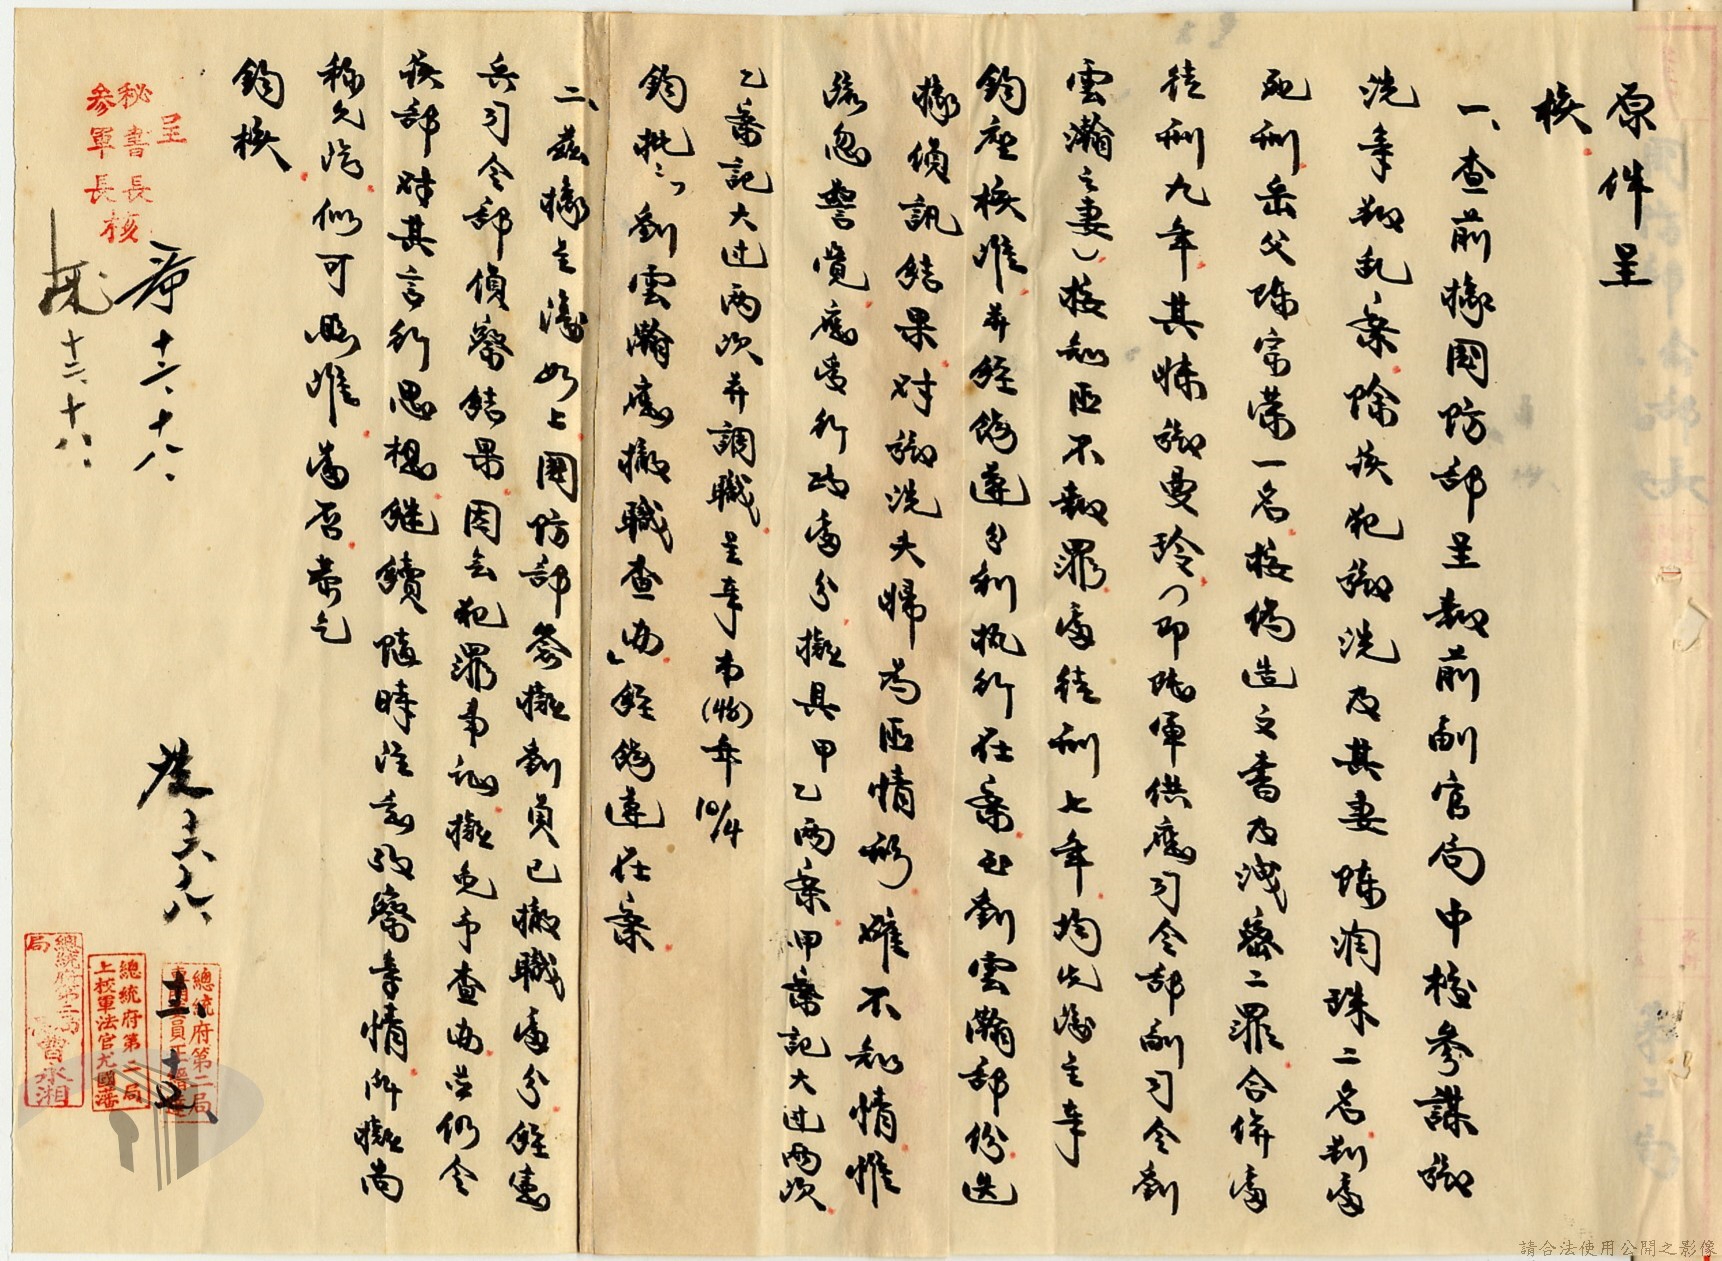 原件呈
核
一、查前據國防部呈報前副官局中校參謀鄒
洗等叛乱案除該犯鄒洗及其妻陳潤珠二名判處
死刑岳父陳宗荣一名按偽造文書及洩密二罪合併處
徒刑九年其妹鄒曼玲（即陸軍供應司令部副司令劉
雲瀚之妻）按知匪不報罪處徒刑七年均先後主奉
鈞座核准并經飭遵分別執行在案至劉雲瀚部份迭
據偵訊結果對鄒洗夫婦為匪情形雖不知情惟
疏忽警覺應受行政處分擬具甲乙兩案甲案記大过兩次
乙案記大过兩次并調職呈奉本年10/4
鈞批：「劉雲瀚應撤職查办」經飭遵在案
二、茲據主簽如上國防部簽擬劉員已撤職處分經憲
兵司令部偵察結果因無犯罪事証擬免予查办並仍令
該部對其言行思想継續隨時注意考察等情所擬尚
称允洽似可照准當否恭乞
鈞核
呈
秘書長
參軍長
核
十二、十八、
十二、十八、
總統府第二局
總統府第二局
上校軍法官尤國藩
總統府第二局
局
曹永湘
請合法使用公開之影像